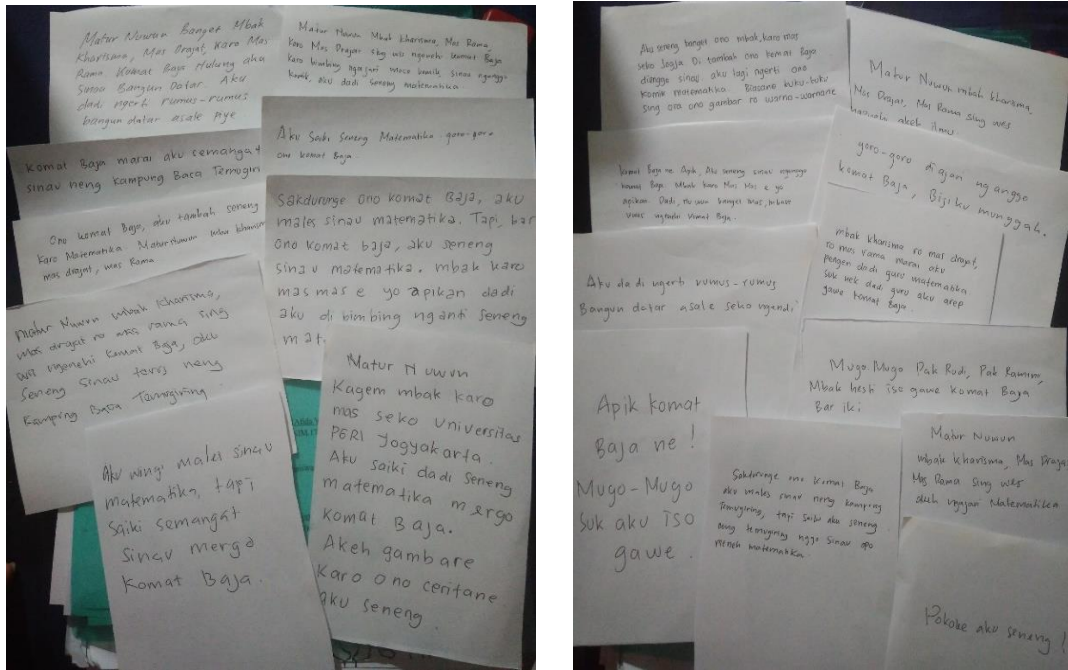 Matur Nuwun Banget Mbak
Kharisma, Mas Drajat, Karo Mas
Rama Komat Baja Nulung aku
Sinau Bangun Datar. Aku
dadi ngerti rumus-rumus
bangun datar asale piye
Matur Nuwun Mbak Kharisma, Mas Rama,
Karo Mas Drajat sing wis ngenehi komat Baja
Karo bimbing ngajari moco komik, sinau nganggo
komik, aku dadi seneng matematika.
Aku Saiki Seneng Matematika goro-goro
ono komat Baja
komat Baja marai aku semangat
sinau neng Kampung Baca Temugiring
Sakdurunge Ono komat Baja, aku
males sinau matematika. Tapi, bar
ono komat baja, aku seneng
sinau matematika. mbak karo
mas mas e yo apikan dadi
aku di bimbing nganti seneng
mat
Ono komat Baja, aku tambah seneng
Karo Matematika. Maturnuwun mba kharisma
mas drajat, mas Rama
Matur Nuwun mbak kharisma,
mas drajat ro mas rama sing
wis ngenehi komat Baja, aku
seneng sinau terus neng
Kampung Baca Temugiring
Matur Nuwun
Kagem mbak karo
mas seko Universitas
PGRI Yogyakarta.
Aku saiki dadi seneng
matematika mergo
komat Baja.
Akeh gambare
Karo ono ceritane
aku seneng
Aku wingi males sinau
matematika, tapi
saiki semangat
sinau mergo
Komat Baja.
Aku seneng banget ono mbak, karo mas
seko Jogja. Di tambah ono komat Baja
dianggo sinau aku lagi ngerti ono
komik matematika. Biasane buku-buku
sing ora ono gambar ro warna-warnane
Matur Nuwun mbah kharisma,
Mas Drajat, Mas Rama sing wes
akeh ilmu.
komat Baja ne Apik, Aku seneng sinau nganggo
komat Baja. Mbak karo Mas Mas e yo
apikan. Dadi, nuwun banget mas, mbase
komat Baja.
goro-goro diajari nganggo
komat Baja, Bijiku munggah.
mbak kharisma ro mas drajat,
ro mas rama marai aku
pengen dadi guru matematika
suk nek dadi guru aku arep
gawe komat Baja.
Aku dadi ngerti rumus-rumus
Bangun datar asale seko ngendi
Mugo Mugo Pak Rudi, Pak
Mbak hesti iso gawe komat Baja
Bar iki
Apik Komat
Baja ne!
Mugo-Mugo
Suk aku iso
gawe.
Sakdurunge ono komat Baja
aku males sinau neng kampung
Temugiring, tapi saiki aku seneng
neng temugiring nggo sinau opo
meneh matematika.
Matur Nuwun
mbak kharisma, Mas Drajat
Mas Rama sing wes
ngajari Matematika
Pokoke aku seneng!